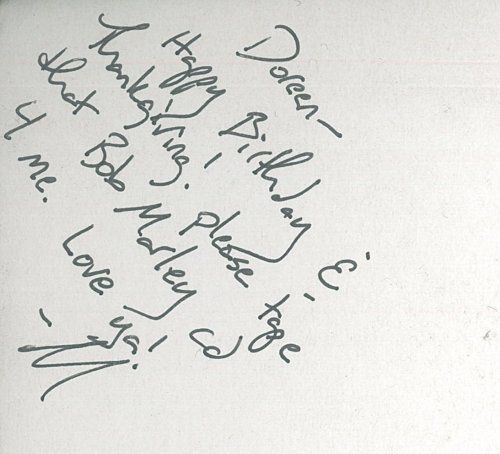 Doreen-
Happy Birthday &
Thanksgiving! please tape
that Bob Marley cd
4 me. Love ya!